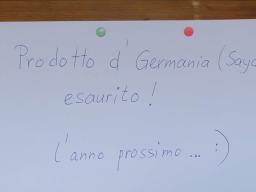 Prodotto d'Germania (Saya
esaurito!
L'anno prossimo... :)